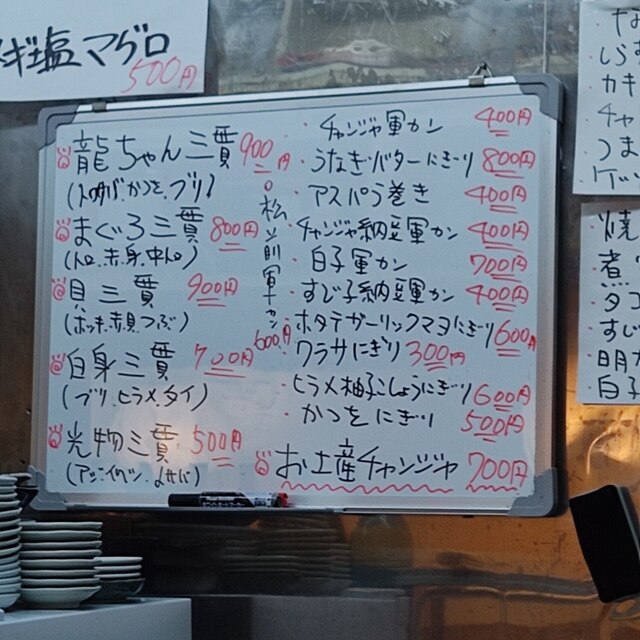 ネギ塩マグロ
500円
龍ちゃん三貫 900円
まぐろ三貫 800円
(トロ.赤身.中トロ)
貝三貫 900円
(ホッキ.赤貝.つぶ)
白身三貫 700円
(ブリ.ヒラメ.タイ)
光物三貫 500円
(アジ.イワシ.〆サバ)
松前軍カン 600円
・チャンジャ軍カン 400円
・うなぎバターにぎり 800円
・アスパラ巻き 400円
・チャンジャ納豆軍カン 400円
・白子軍カン 700円
・すじ子納豆軍カン 400円
・ホタテガーリックマヨにぎり 600円
・ワラサにぎり 300円
・ヒラメ柚子こしょうにぎり 600円
・かつをにぎり 500円
お土産チャンジャ 700円
・しら
・カキ
・チャ
・つま
焼
煮
タコ
すじ
明太
白子